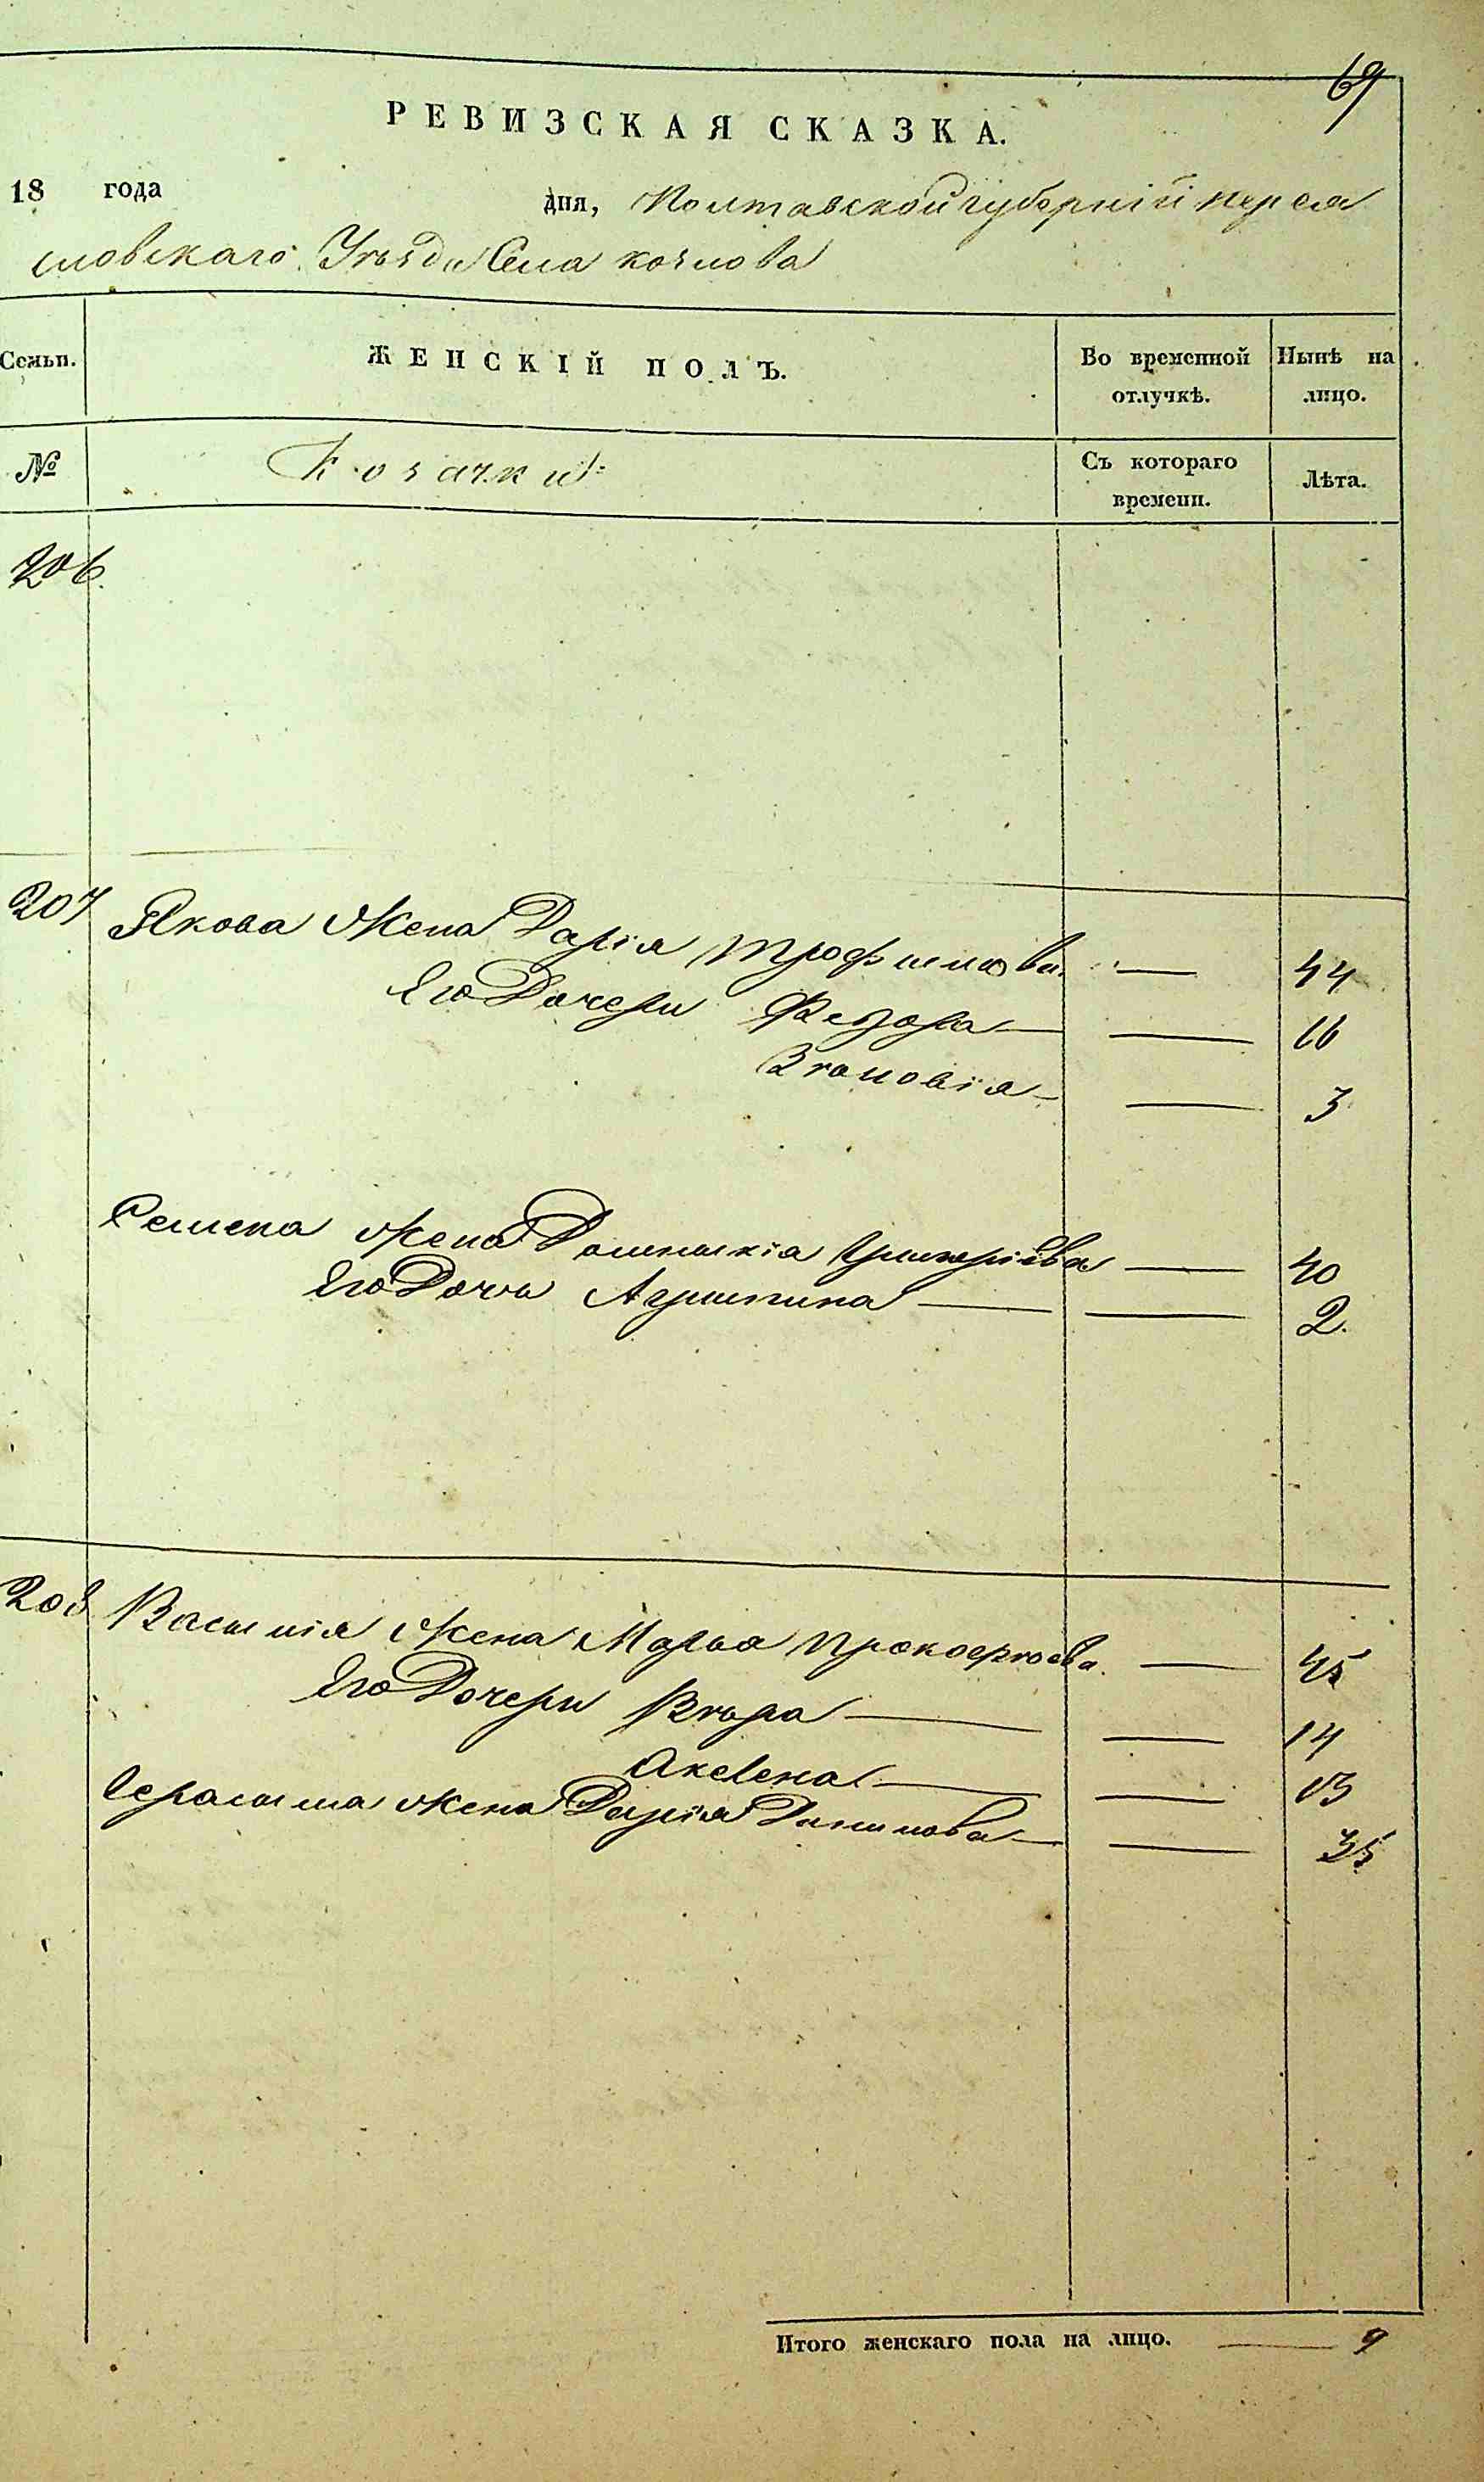 69
РЕВИЗСКАЯ СКАЗКА.
18 года дня, Полтавской губерній перея
словскаго Уѣзда Села козлова
Семьи. ЖЕНСКІЙ ПОЛЪ. Во временной отлучкѣ. Нынѣ на лицо.
№ Козачки: Съ котораго времени. Лѣта.
206.
207 Якова Жена Дарія Трофимова — 44
Его Дочери Феодора — 16
Зѣновія — 3
Семена жена Домникія Григоріева — 40
Его Дочь Агрипина — 2.
208 Василія жена Марья Прокофьева. — 45
Его Дочери Вѣра — 14
Аксеня — 13
Герасима жена Дарія Данилова — 35
Итого женскаго пола на лицо. — 9